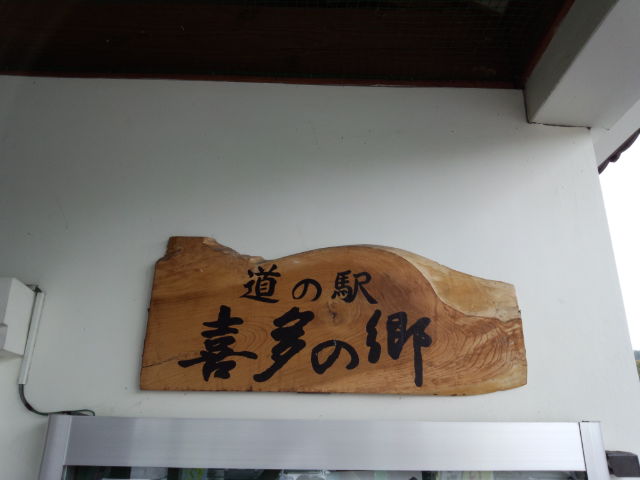 道の駅
喜多の郷